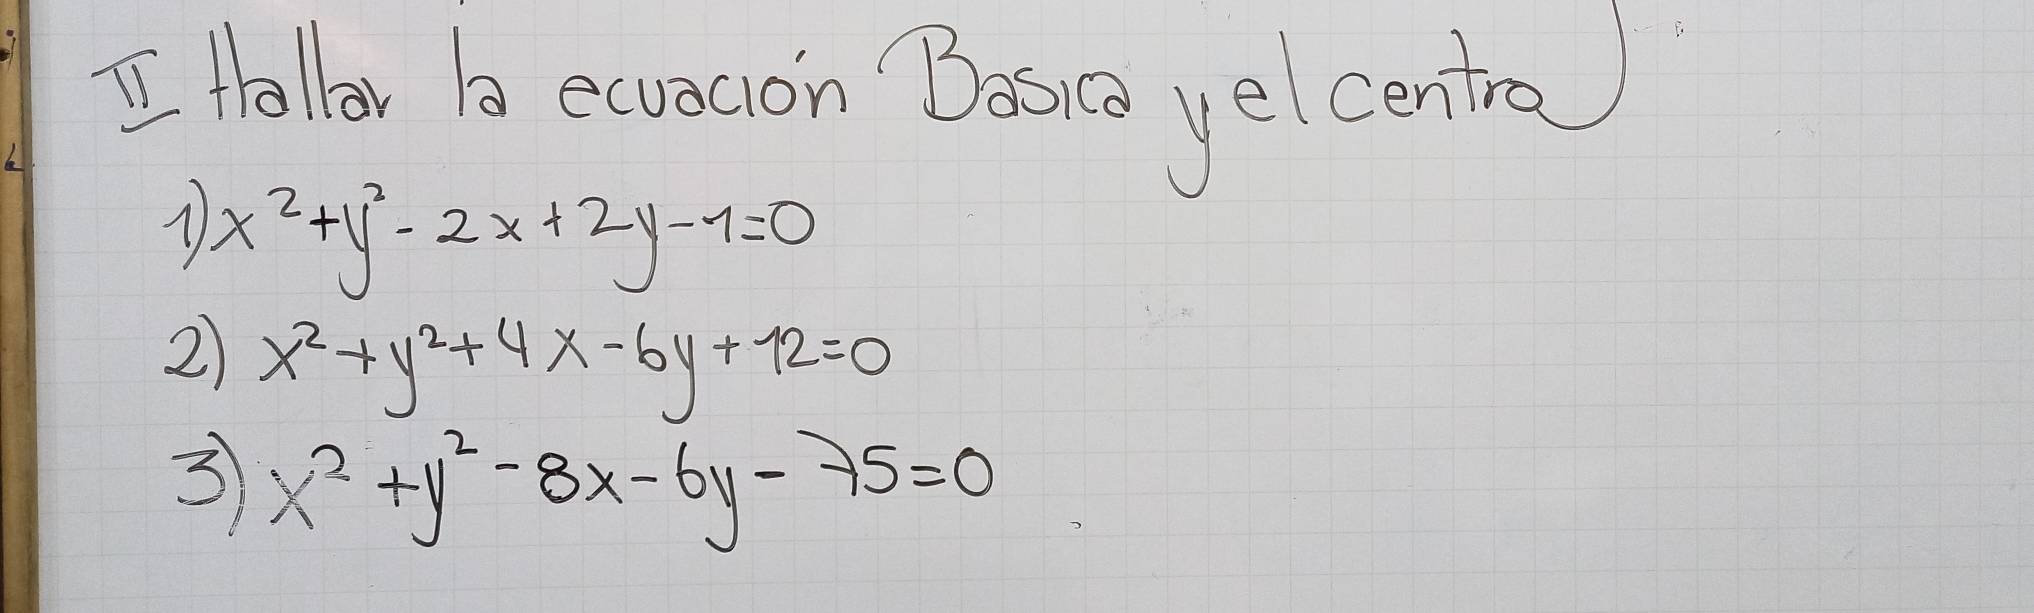 II Hallar la ecuación Basica y el centro
1) x² + y² - 2x + 2y - 1 = 0
2) x² + y² + 4x - 6y + 12 = 0
3) x² + y² - 8x - 6y - 75 = 0